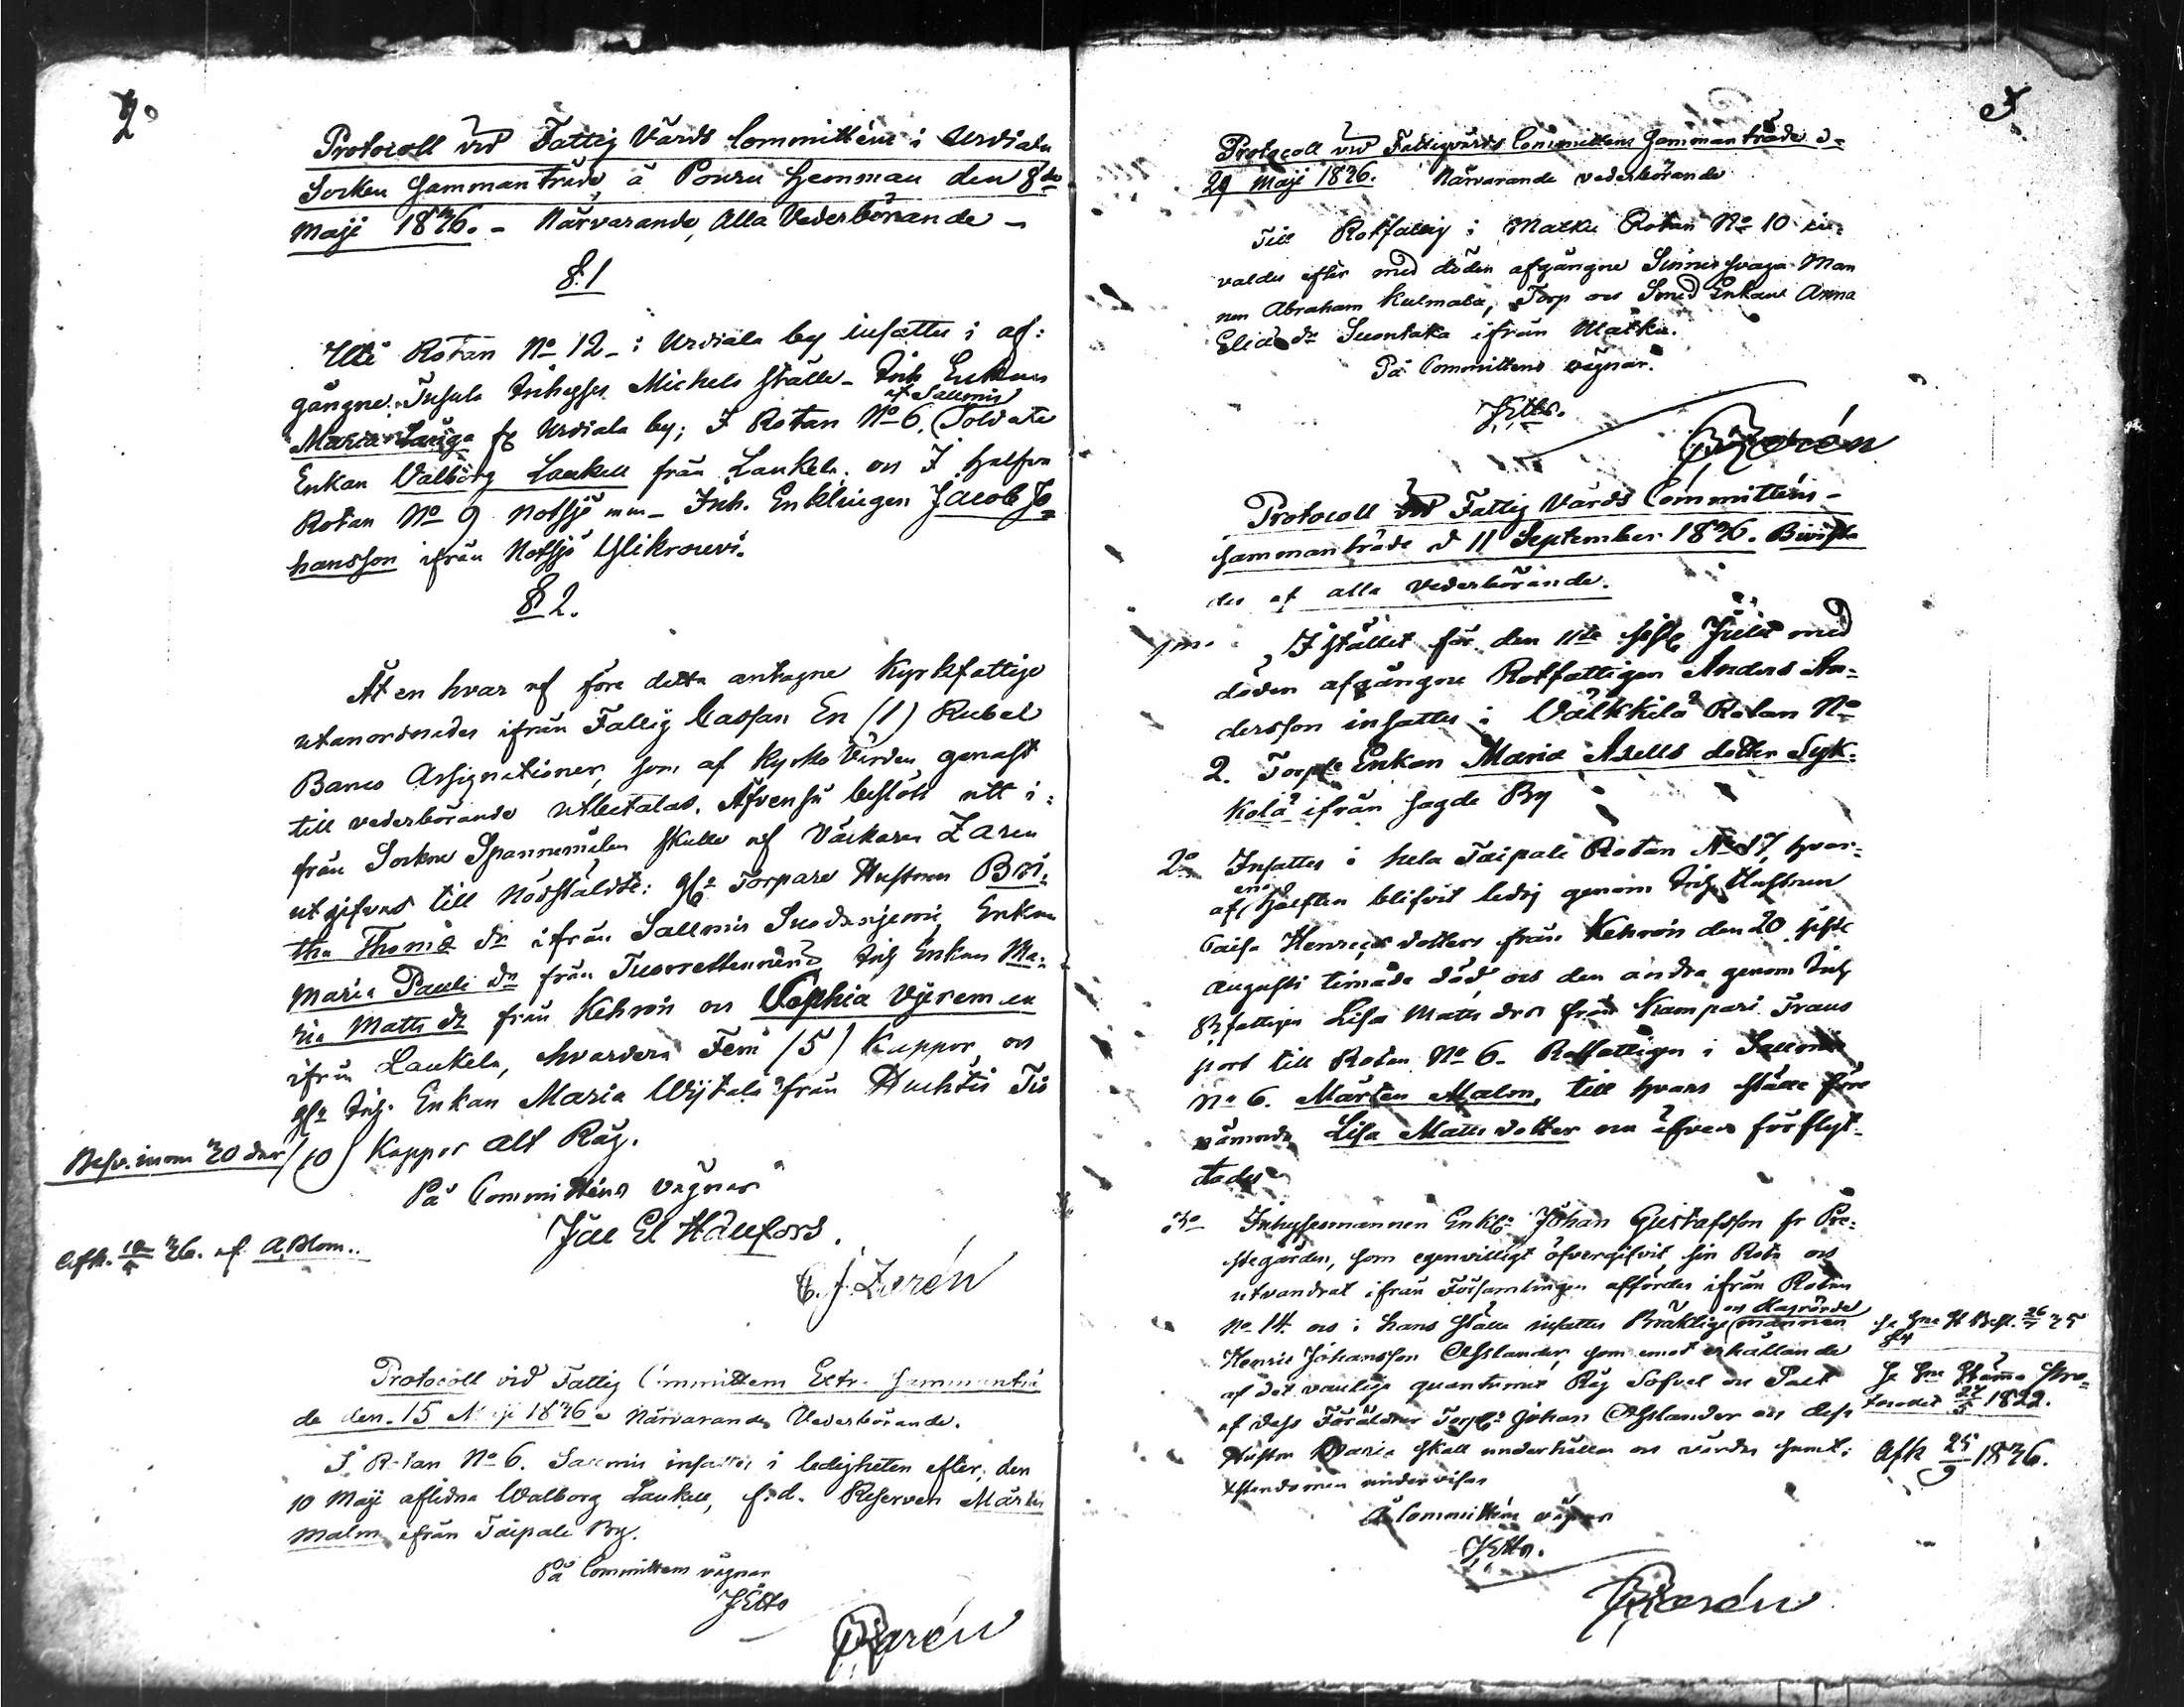 2.
Protocoll vid Fattig Vårds Committéns i Urdiala
Socken Sammanträde å Ponsu Hemman den 8de
Maji 1836. - Närvarande, Alla Vederbörande -
§. 1
Uti Rotan No 12 i Urdiala by insattes i af:
gångne Michels ställe - Inh. Enkan
Maria Lauga fr Urdiala by; I Rotan No 6. af Sallmis Soldats
Enkan Walborg Laukell från Laukela. och I halfva
Rotan No 9 Notsjö - Inh. Enklingen Jacob Jo
hansson ifrån Notsjö Ylikrouvi.
§ 2.
Åt en hvar af före detta antagne Kyrkfattige
utanordnades ifrån Fattig Cassan En (1) Rubel
Banco Assignationer, som af Kyrko Värden genast
till vederbörande utbetalas. Äfvenså beslöts att i:
från Sockne Spannemålen skulle af Väckaren Zaren
utgifvas till Nödstäldte: Torpare Hustrun Bri:
tha Thomæ dr ifrån Sallmis Suodenjemi, Enkan
Maria Pauli dr från Inh Enkan Ma:
ria Matts dr från Kehrois och Sophia
ifrån Laukela, hvardera Fem (5) Kappor och
Inh. Enkan Maria Wijtala från Huhtis Tio
(10) Kappor Alt Råg.
Besv. inom 30 dar
På Committéns vägnar
Joh El Hällfors.
C. J. Zarén
Afk. 36. af A. Blom.
Protocoll vid Fattig Committens Extra Sammanträ
de den 15 Maji 1836. Närvarande Vederbörande.
I Rotan No 6. Sallmis insattes i ledigheten efter, den
10 Maji aflidna Walborg Laukell, f.d. Reserven Mårten
Malm ifrån Taipale By.
På Committens vägnar
JEHs
Zarén
3
Protocoll vid Fattigvårds Committens Sammanträde d.
29 Maji 1836. Närvarande vederbörande
Till Rotfattig i Matku Rotan No 10 in:
valdes efter med döden afgångne Sinnessvaga Man
nen Abraham Kulmala, Torp och Smed Enkan Anna
Eliæ dr Suontaka ifrån Matku.
På Committens vägnar.
JEHs.
Zarén
Protocoll vid Fattig Vårds Committéns -
Sammanträde d 11 September 1836. Bevista
des af alla vederbörande.
1mo I stället för den 11te sistl. Julii med
döden afgångne Rotfattigen Anders An-
dersson insattes i Välkkilä Rotan No
2. Torp Enkan Maria Axells dotter Syk-
kölä ifrån sagde By
2o Insattes i hela Taipale Rotan No 17, hvar-
af ena hälften blifvit ledig genom Inh Hustrun
Caisa Henrics dotters från Kehrois den 20 sistl
Augusti timade död och den andra genom Inh
Rfattigen Lisa Matts drs från Kampari Trans
port till Rotan No 6. Rotfattigen i Sallmis
No 6. Mårten Malm, till hvars ställe före
nämnde Lisa Matts dotter nu äfven förflyt-
tades
3o Inhysesmannen Enkl. Johan Gustafsson fr Pre:
stegården, som egenvilligt öfvergifvit sin Rota och
utvandrat ifrån Församlingen affördes ifrån Rotan
No 14. och i hans ställe insattes Bräklige mannen
Henric Johansson Åhslander, som emot erhållande
af det vanliga quantumet Råg Sofvel och Salt
af dess Föräldrar Torp. Johan Åhslander och dess
Hustru Maria skall underhållas och vårdas samt i
Christendomen undervisas
På Committéns vägnar
JEHs.
Zarén
1822.
Afk 25/9 1836.